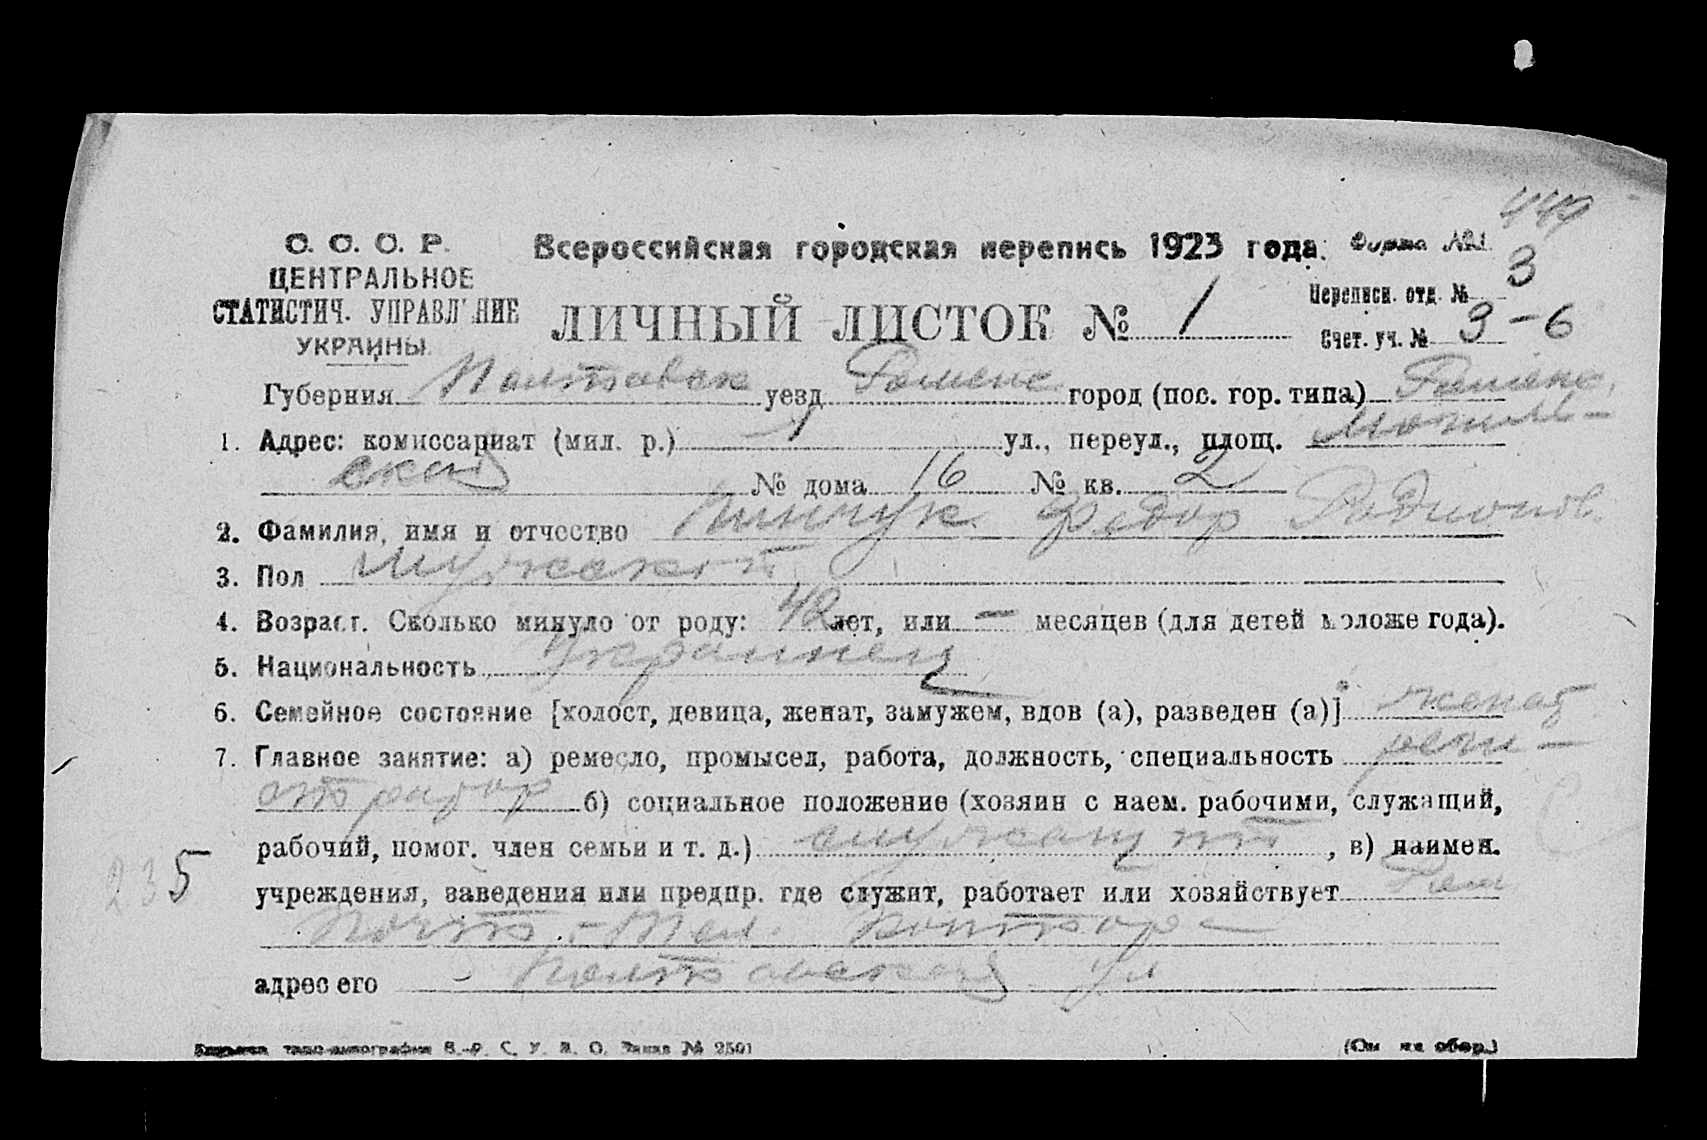 449
С. С. С. Р. Всероссийская городская перепись 1923 года. Форма №1
ЦЕНТРАЛЬНОЕ
СТАТИСТИЧ. УПРАВЛЕНИЕ
УКРАИНЫ
ЛИЧНЫЙ ЛИСТОК № 1
Переписн. отд. № 3
Счет. уч. № 3-6
Губерния Полтавск уезд Роменс город (пос. гор. типа) Роменс
1. Адрес: комиссариат (мил. р.) 1 ул., переул., площ.
ская № дома 16 № кв. 2
2. Фамилия, имя и отчество Пинчук Федор Родионов.
3. Пол Мужской
4. Возраст. Сколько минуло от роду: 42 лет, или — месяцев (для детей моложе года).
5. Национальность Украинец
6. Семейное состояние [холост, девица, женат, замужем, вдов (а), разведен (а)] женат
7. Главное занятие: а) ремесло, промысел, работа, должность, специальность реги-
стратор б) социальное положение (хозяин с наем. рабочими, служащий,
рабочий, помог. член семьи и т. д.) служащий, в) наимен.
235
учреждения, заведения или предпр. где служит, работает или хозяйствует Ром
Почт.-Тел. Контора
адрес его - Полтавская ул
типо-литография В.-Р. С. У. В. О. Заказ № 2501 (См на обор.)